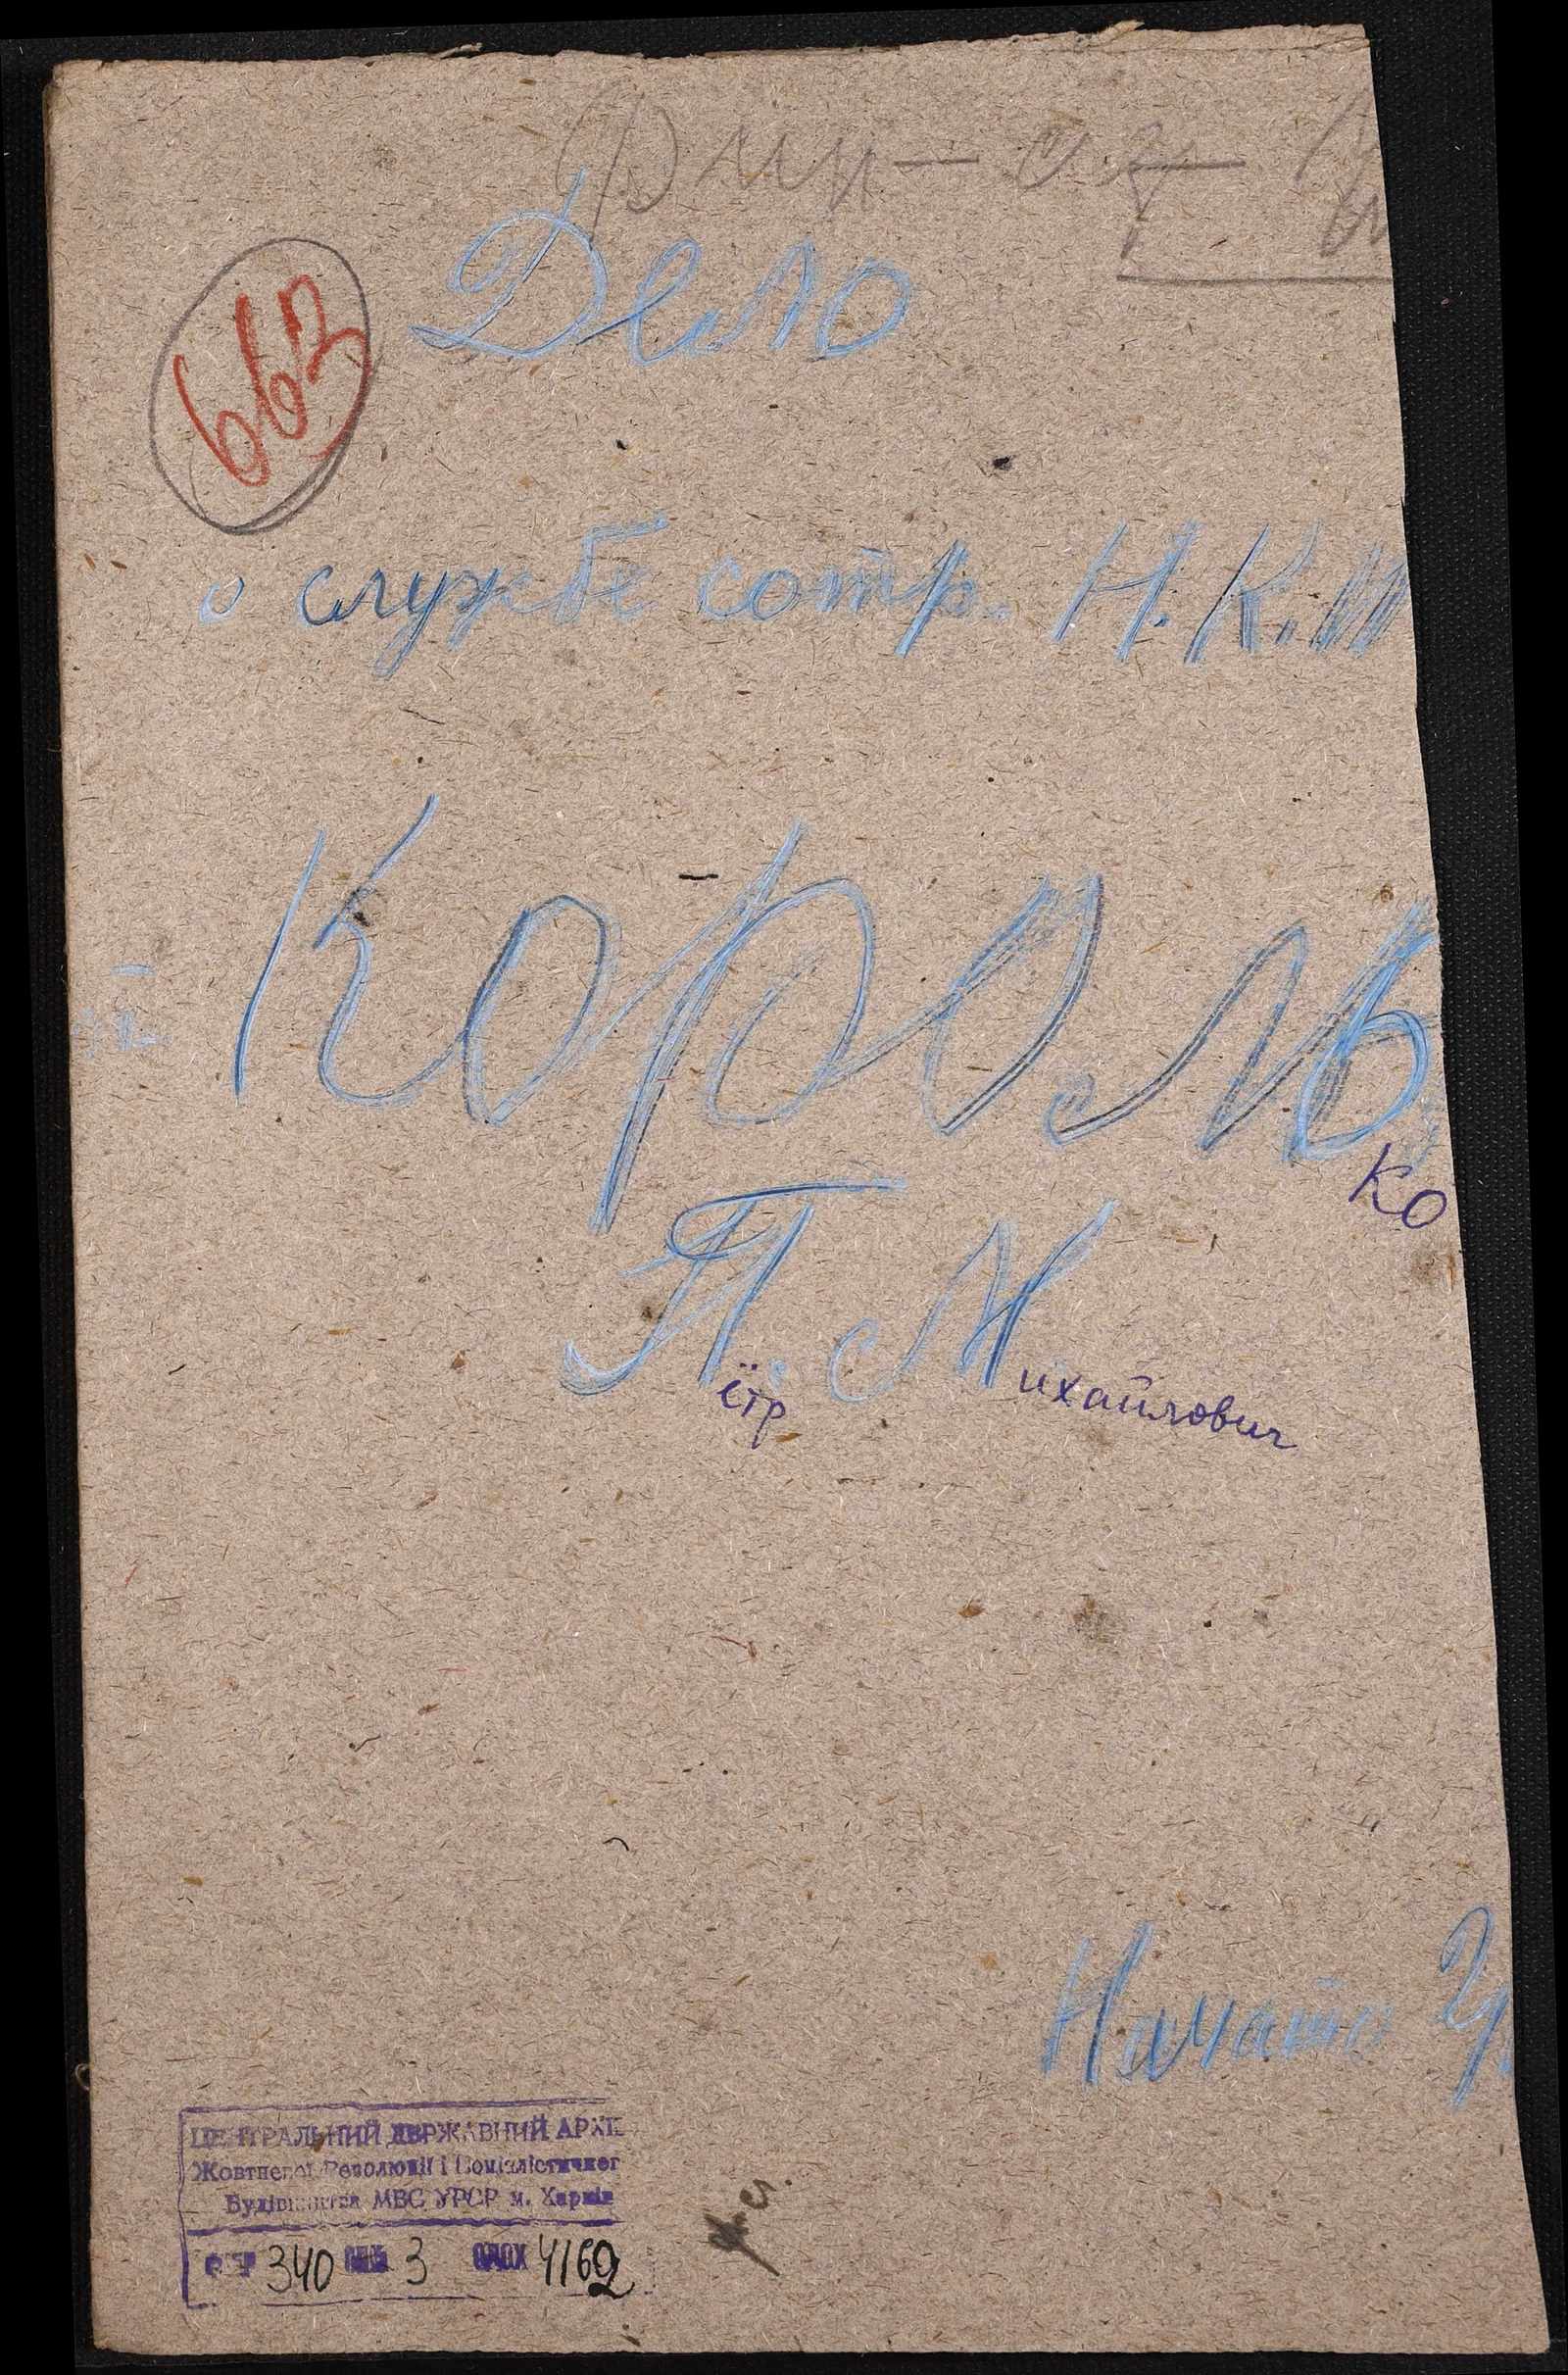 Дело
663
о службе сотр. Н.К.
Король
ко
П. М
ётр ихайлович
Начато
ЦЕНТРАЛЬНИЙ ДЕРЖАВНИЙ АРХІ
Жовтневої Революції і Соціалістичног
Будівництва МВС УРСР м. Харків
340 3 4162